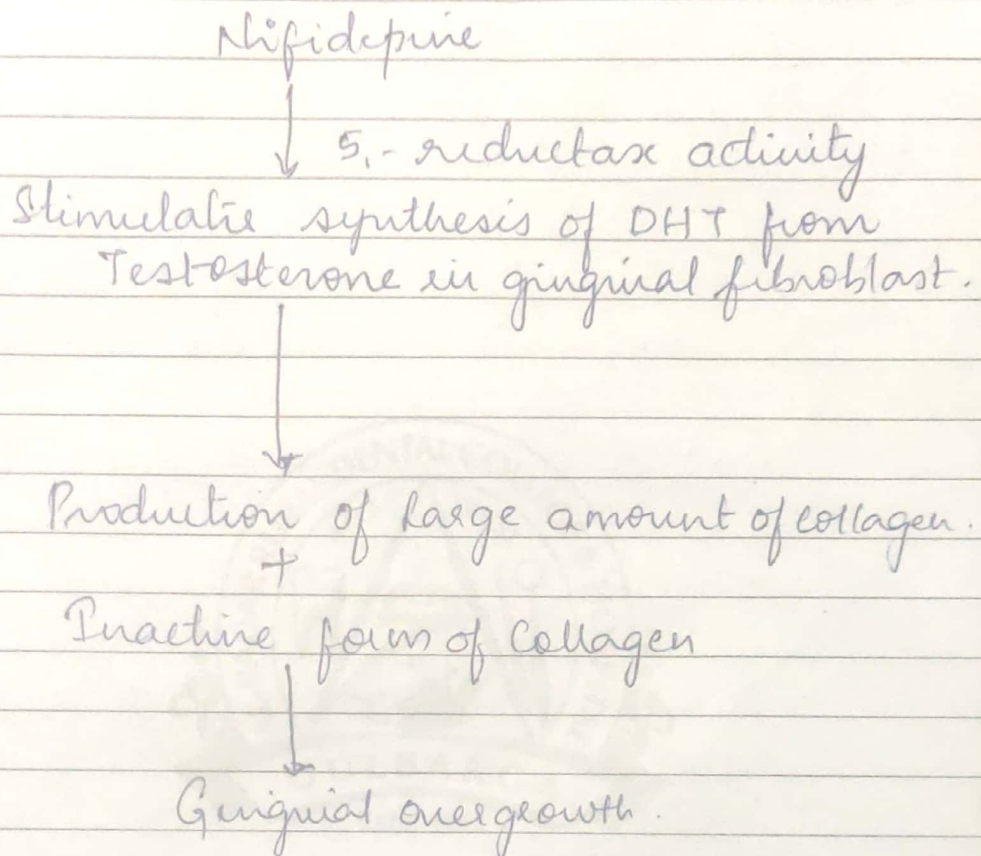 Nifidepine
↓
5,- reductase activity
Stimulate synthesis of DHT from
Testosterone in gingival fibroblast.
↓
Production of large amount of collagen.
+
Inactive form of Collagen
↓
Gingival overgrowth.
DENTAL